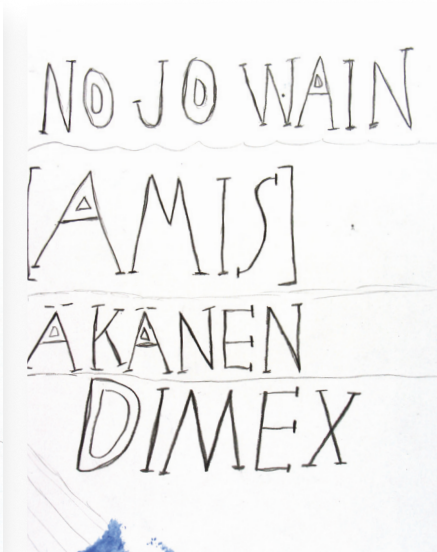 NO JO WAIN
[AMIS]
ÄKÄNEN
DIMEX